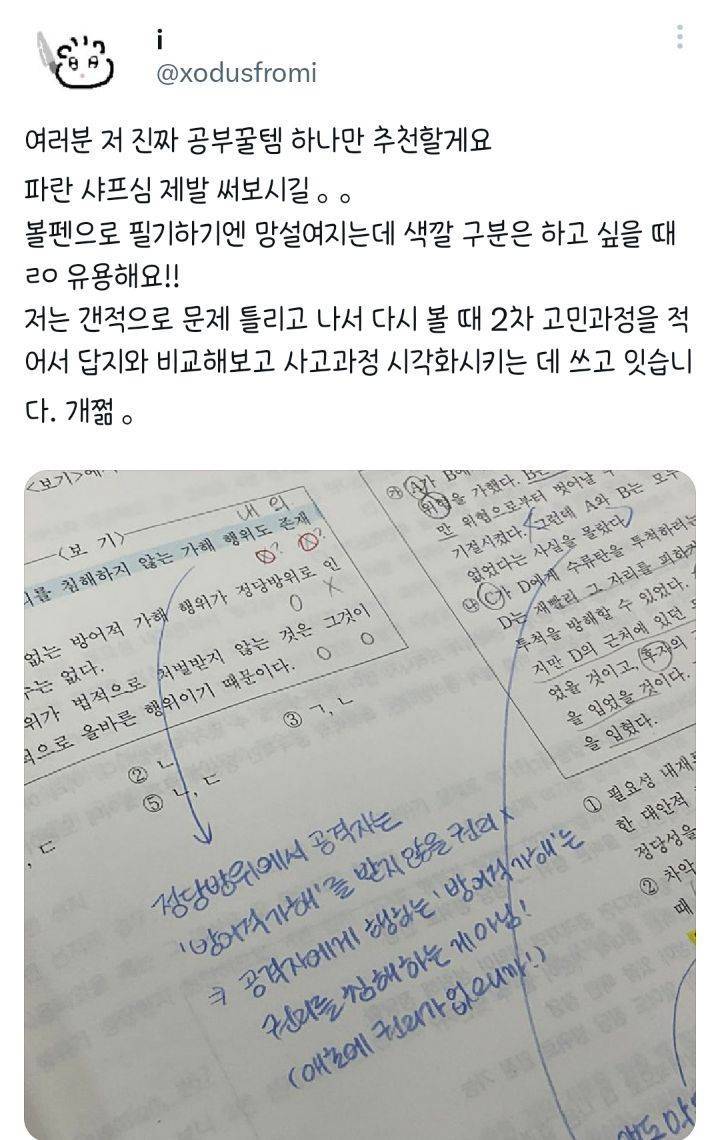 i
@xodusfromi
여러분 저 진짜 공부꿀템 하나만 추천할게요
파란 샤프심 제발 써보시길 。。
볼펜으로 필기하기엔 망설여지는데 색깔 구분은 하고 싶을 때
ㄹㅇ 유용해요!!
저는 갠적으로 문제 틀리고 나서 다시 볼 때 2차 고민과정을 적
어서 답지와 비교해보고 사고과정 시각화시키는 데 쓰고 잇습니
다. 개쩖 。
<보기>에
내의
<보 기>
를 침해하지 않는 가해 행위도 존재
X? X?
없는 방어적 가해 행위가 정당방위로 인
는 없다.
O X
위가 법적으로 처벌받지 않는 것은 그것이
적으로 올바른 행위이기 때문이다.
O O
② ㄴ
③ ㄱ, ㄴ
⑤ ㄴ, ㄷ
, ㄷ
정당방위에서 공격자는
'방어적 가해'를 받지 않을 권리 X
→ 공격자에게 행하는 '방어적 가해'는
권리를 침해하는 게 아님!
(애초에 권리가 없으니까!)
㉮ A가 B에
위협을 가했다. B는
만 위협으로부터 벗어날 수
기절시켰다. 그런데 A와 B는 모두
없었다는 사실을 몰랐다.
㉯ C가 D에게 수류탄을 투척하려는
D는 재빨리 그 자리를 피하
투척을 방해할 수 있었다.
지만 D의 근처에 있던
었을 것이고, 후자의
을 입었을 것이다.
을 입혔다.
① 필요성 내재
한 대안적
정당성을
② 차악
때